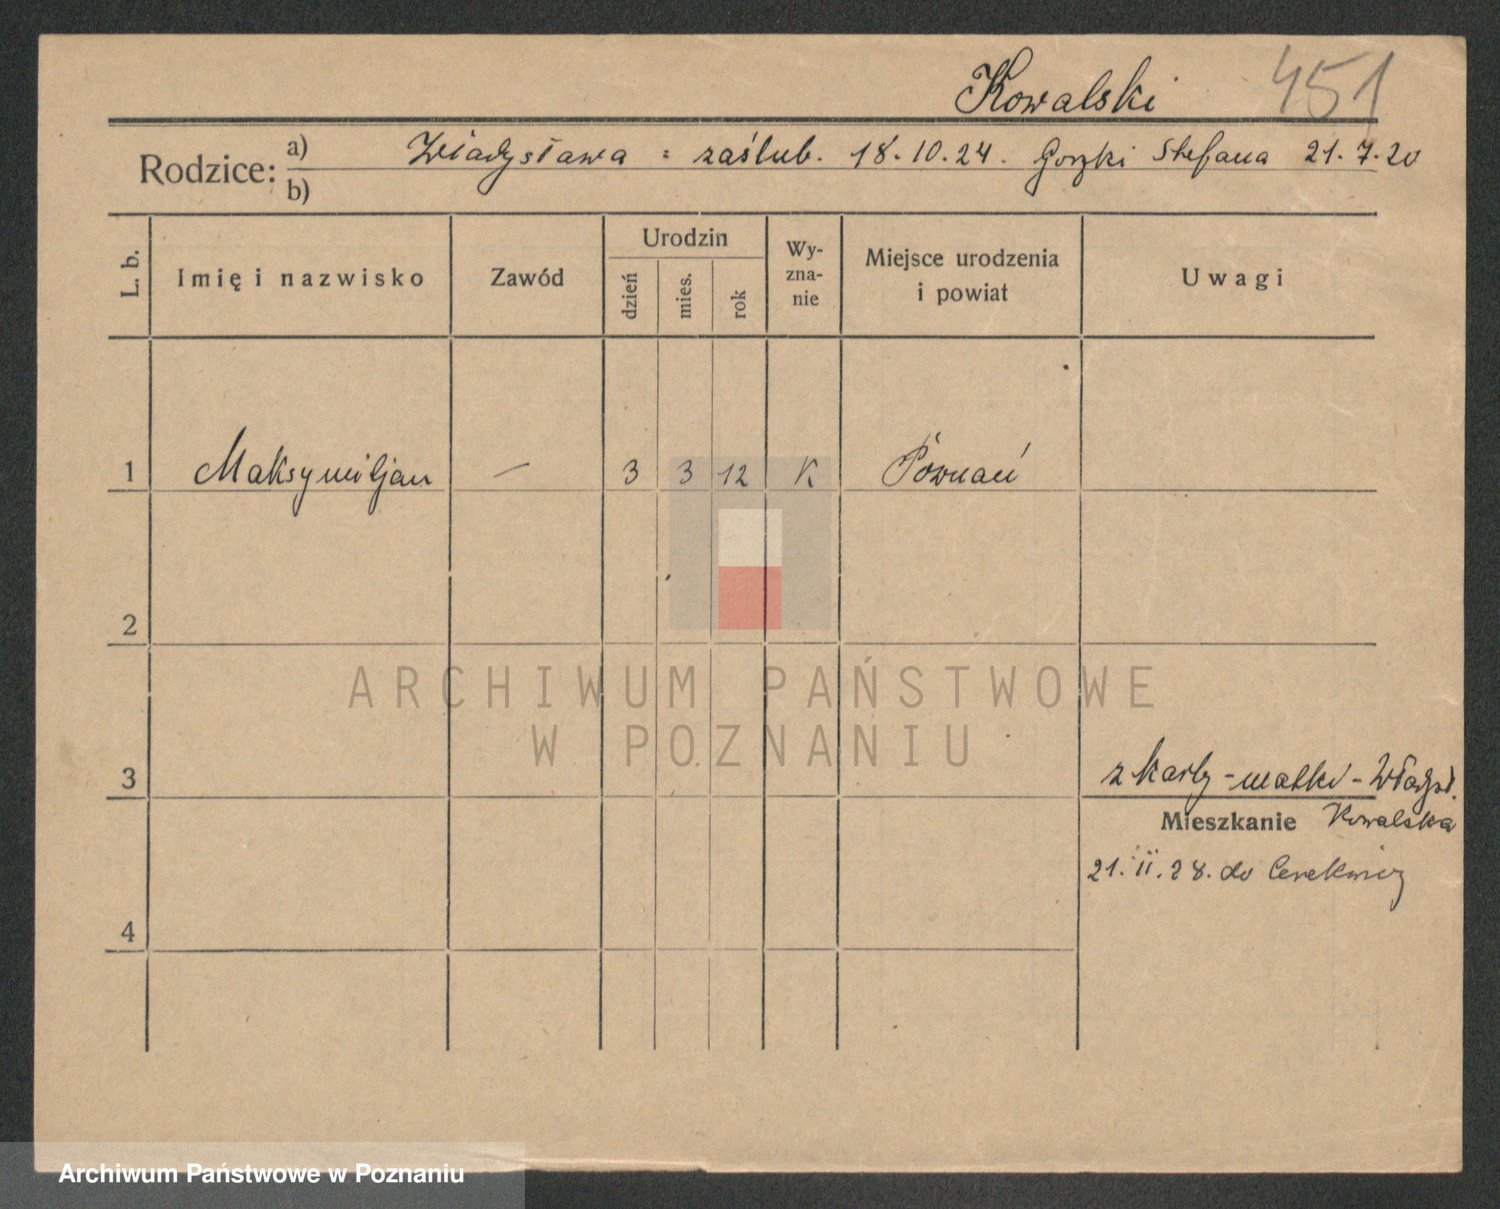 Kowalski 451
Rodzice: a) Władysława = zaślub. 18.10.24. Gorzki Stefana 21.7.20
b)
L. b. Imię i nazwisko Zawód Urodzin dzień mies. rok Wy-zna-nie Miejsce urodzenia i powiat Uwagi
1 Maksymiljan — 3 3 12 K Poznań
2
ARCHIWUM PAŃSTWOWE
W POZNANIU
3 z karty - matki - Władysł.
Mieszkanie Kowalska
21. II. 28. do Cerekwicy
4
Archiwum Państwowe w Poznaniu